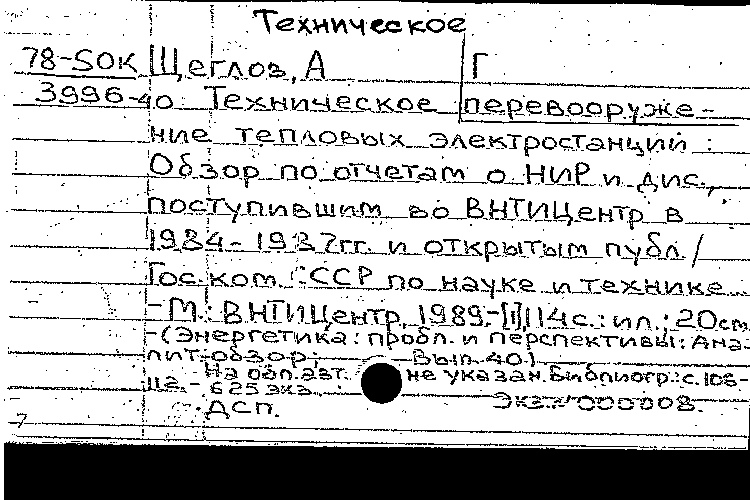 Техническое
78-50К Щеглов, А Г
3996-40 Техническое перевооруже-
ние тепловых электростанций :
Обзор по отчетам о НИР и дис.,
поступившим во ВНТИЦентр в
1984-1987гг. и открытым публ. /
Гос. ком. СССР по науке и технике.
-М.: ВНТИЦентр, 1989.-[1],114с.: ил.; 20см
-(Энергетика: пробл. и перспективы: Ана-
лит. обзор; Вып. 40)
На обл. авт. не указан. Библиогр.: с. 108-
112. - 625 экз.
ДСП. Экз. N000008.
7